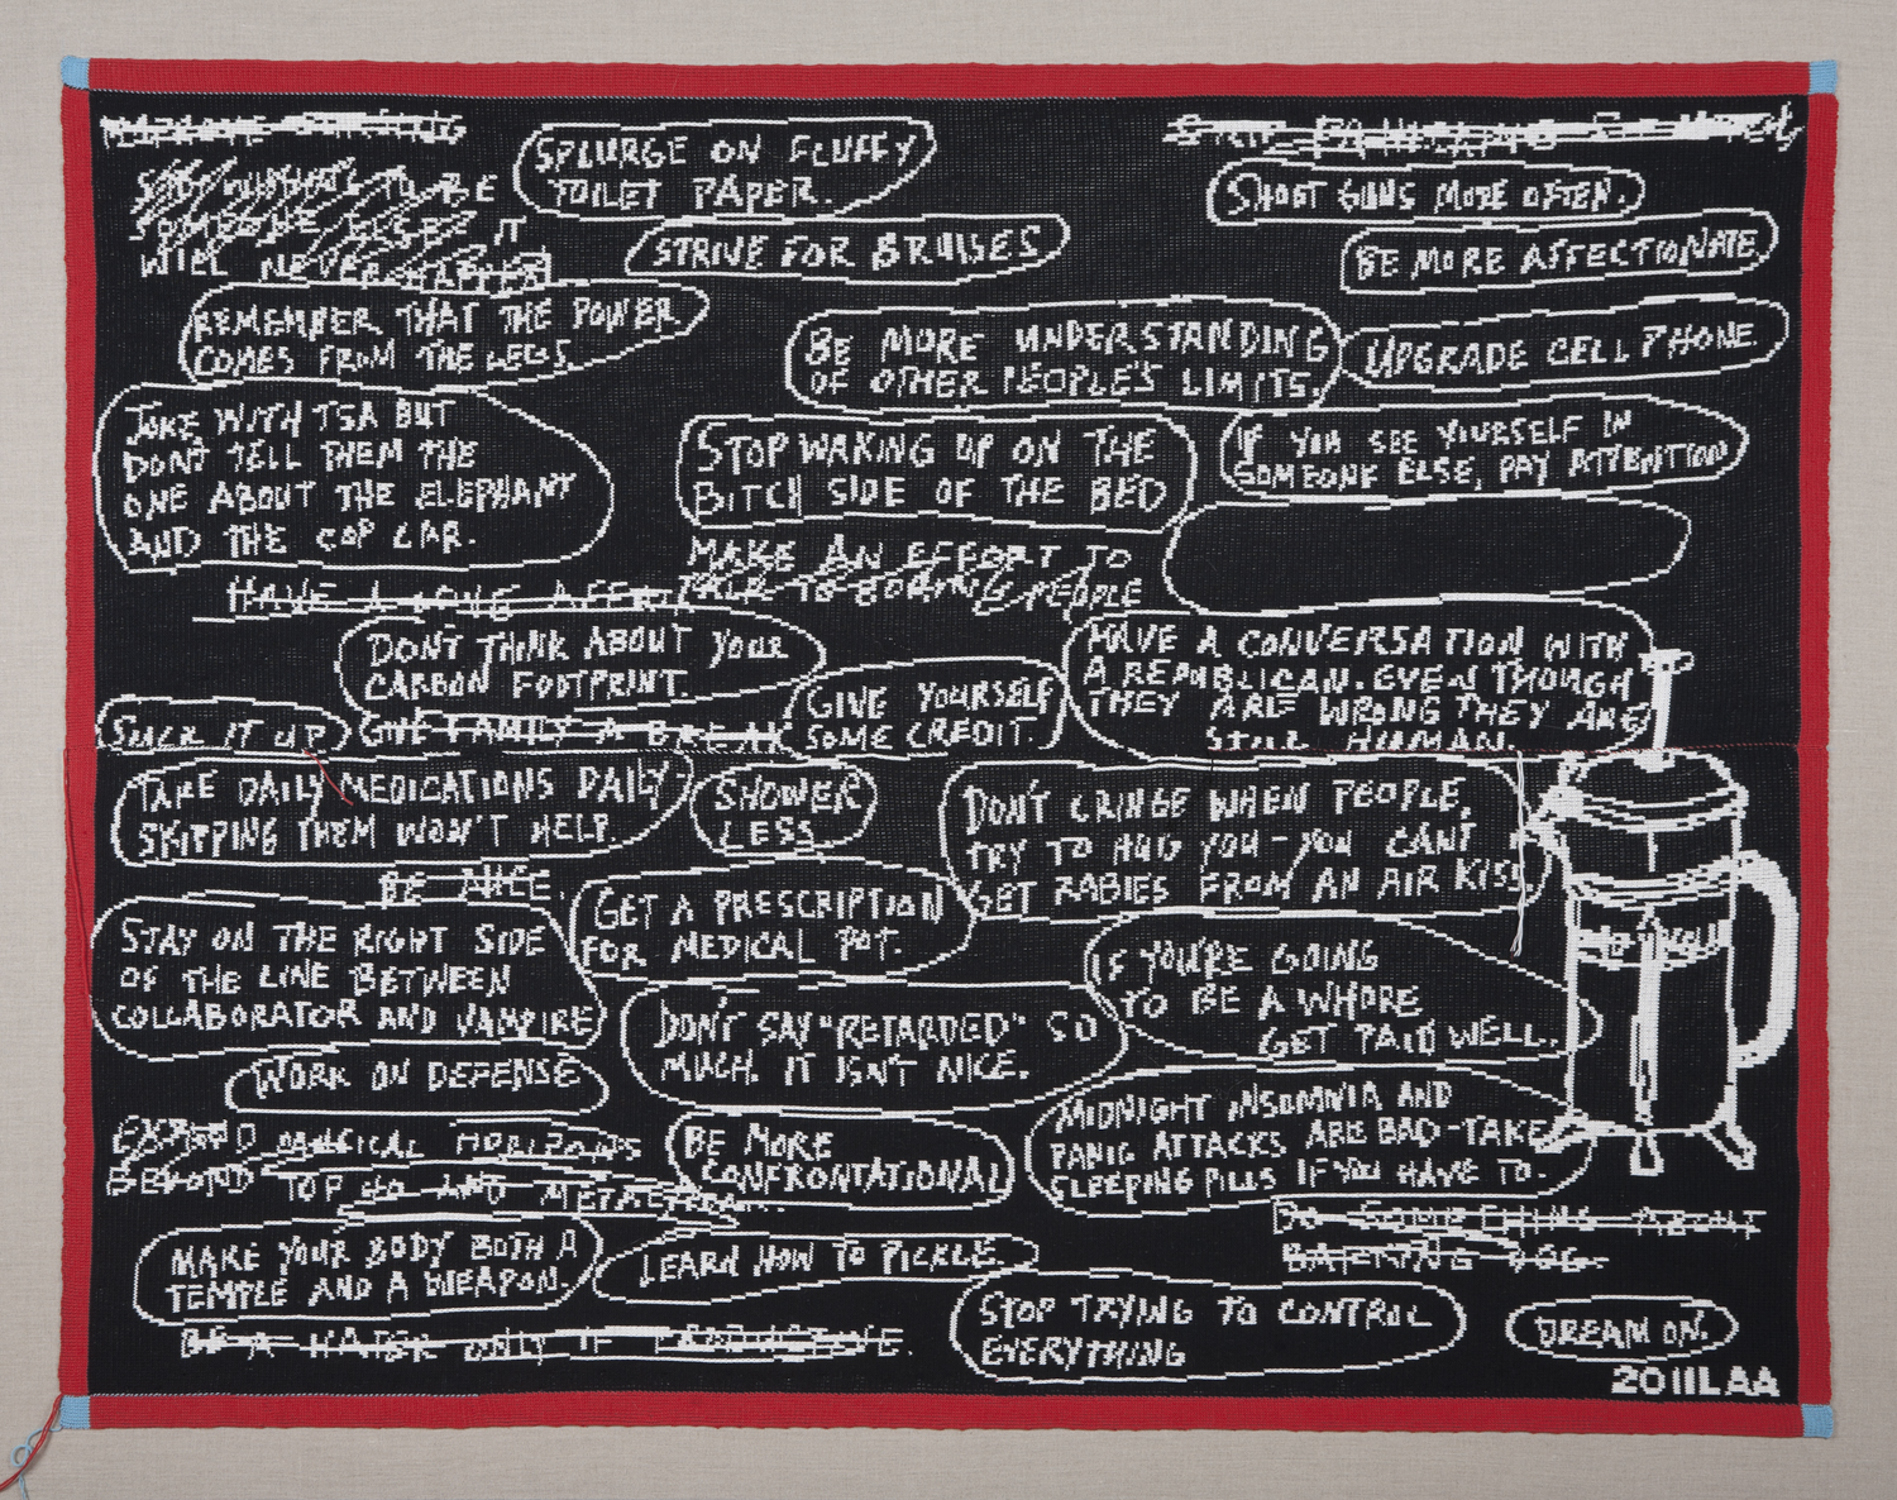 SPLURGE ON FLUFFY
TOILET PAPER.
SHOOT GUNS MORE OFTEN.
BE
IT
WILL NEVER HAPPEN
STRIVE FOR BRUISES
BE MORE AFFECTIONATE
REMEMBER THAT THE POWER
COMES FROM THE LEGS
BE MORE UNDERSTANDING
OF OTHER PEOPLE'S LIMITS.
UPGRADE CELL PHONE.
JOKE WITH TSA BUT
DON'T TELL THEM THE
ONE ABOUT THE ELEPHANT
AND THE COP CAR.
STOP WAKING UP ON THE
BITCH SIDE OF THE BED
IF YOU SEE YOURSELF IN
SOMEONE ELSE, PAY ATTENTION
MAKE AN EFFORT TO
TALK TO BORING PEOPLE
HAVE A LONG
DON'T THINK ABOUT YOUR
CARBON FOOTPRINT.
GIVE YOURSELF
SOME CREDIT.
HAVE A CONVERSATION WITH
A REPUBLICAN. EVEN THOUGH
THEY ARE WRONG THEY ARE
STILL HUMAN.
SUCK IT UP
GIVE FAMILY A BREAK
TAKE DAILY MEDICATIONS DAILY-
SKIPPING THEM WON'T HELP.
SHOWER
LESS
DON'T CRINGE WHEN PEOPLE
TRY TO HUG YOU - YOU CAN'T
GET RABIES FROM AN AIR KISS
BE NICE.
GET A PRESCRIPTION
FOR MEDICAL POT.
STAY ON THE RIGHT SIDE
OF THE LINE BETWEEN
COLLABORATOR AND VAMPIRE
IF YOU'RE GOING
TO BE A WHORE
GET PAID WELL.
DON'T SAY "RETARDED" SO
MUCH. IT ISN'T NICE.
WORK ON DEFENSE
EXPAND MUSICAL HORIZONS
BEYOND TOP 40 AND
BE MORE
CONFRONTATIONAL
MIDNIGHT INSOMNIA AND
PANIC ATTACKS ARE BAD-TAKE
SLEEPING PILLS IF YOU HAVE TO.
DO SOMETHING ABOUT
BARKING DOG.
MAKE YOUR BODY BOTH A
TEMPLE AND A WEAPON.
LEARN HOW TO PICKLE.
STOP TRYING TO CONTROL
EVERYTHING
DREAM ON.
BE A HATER ONLY IF
2011LAA